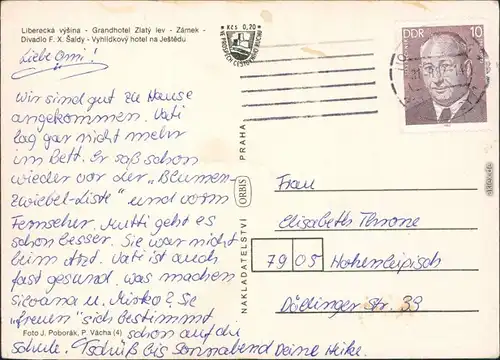 Liberecká výšina - Grandhotel Zlatý lev - Zámek -
Divadlo F. X. Šaldy - Vyhlídkový hotel na Ještědu
Kčs 0,20
Liebe Omi!
Wir sind gut zu Hause
angekommen. Vati
lag gar nicht mehr
im Bett. Er saß schon
wieder vor der „Blumen-
zwiebel-Liste" und vorm
Fernseher. Mutti geht es
schon besser. Sie war nicht
beim Arzt. Vati ist auch
fast gesund. Was machen
Silvana u. Mirko? Sie
"freuen" sich bestimmt
schon auf die
Schule. Tschüß bis Sonnabend Deine Heike.
Foto J. Poborák, P. Vácha (4)
NAKLADATELSTVÍ ORBIS PRAHA
DDR 10
Frau
Elisabeth Throne
7905 Hohenleipisch
Döllinger Str. 39